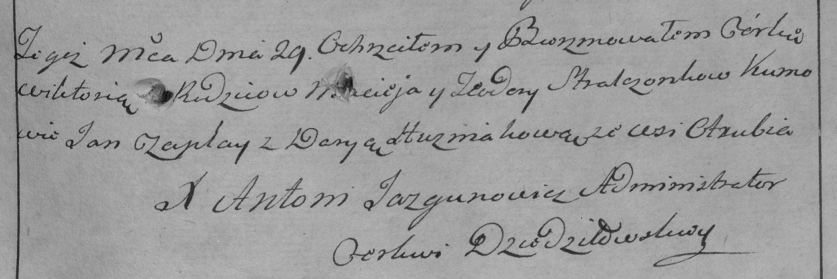 Tegoż Mca Dnia 29. Ochrzciłem y Bierzmowałem Córkę
Wiktoryią Rodzicow Macieja y Teodory Stralczonkow Kumo
wie Jan Czaplay z Daryą Huzniakową ze wsi Otrubia
X Antoni Jazgunowicz Administrator
Cerkwi Dziedziłowskiey